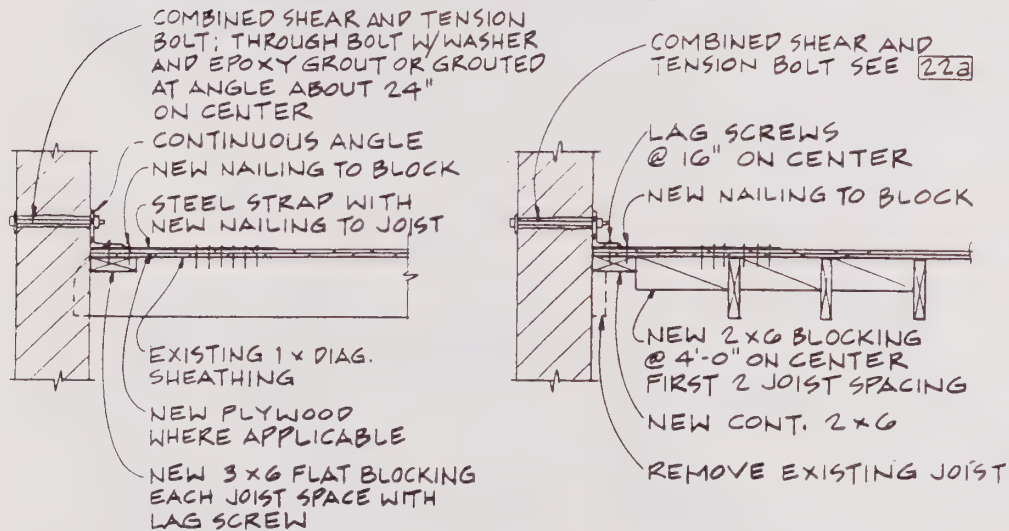 COMBINED SHEAR AND TENSION
BOLT; THROUGH BOLT W/WASHER
AND EPOXY GROUT OR GROUTED
AT ANGLE ABOUT 24"
ON CENTER
CONTINUOUS ANGLE
NEW NAILING TO BLOCK
STEEL STRAP WITH
NEW NAILING TO JOIST
EXISTING 1 x DIAG.
SHEATHING
NEW PLYWOOD
WHERE APPLICABLE
NEW 3 x 6 FLAT BLOCKING
EACH JOIST SPACE WITH
LAG SCREW
COMBINED SHEAR AND
TENSION BOLT SEE 22a
LAG SCREWS
@ 16" ON CENTER
NEW NAILING TO BLOCK
NEW 2 x 6 BLOCKING
@ 4'-0" ON CENTER
FIRST 2 JOIST SPACING
NEW CONT. 2 x 6
REMOVE EXISTING JOIST